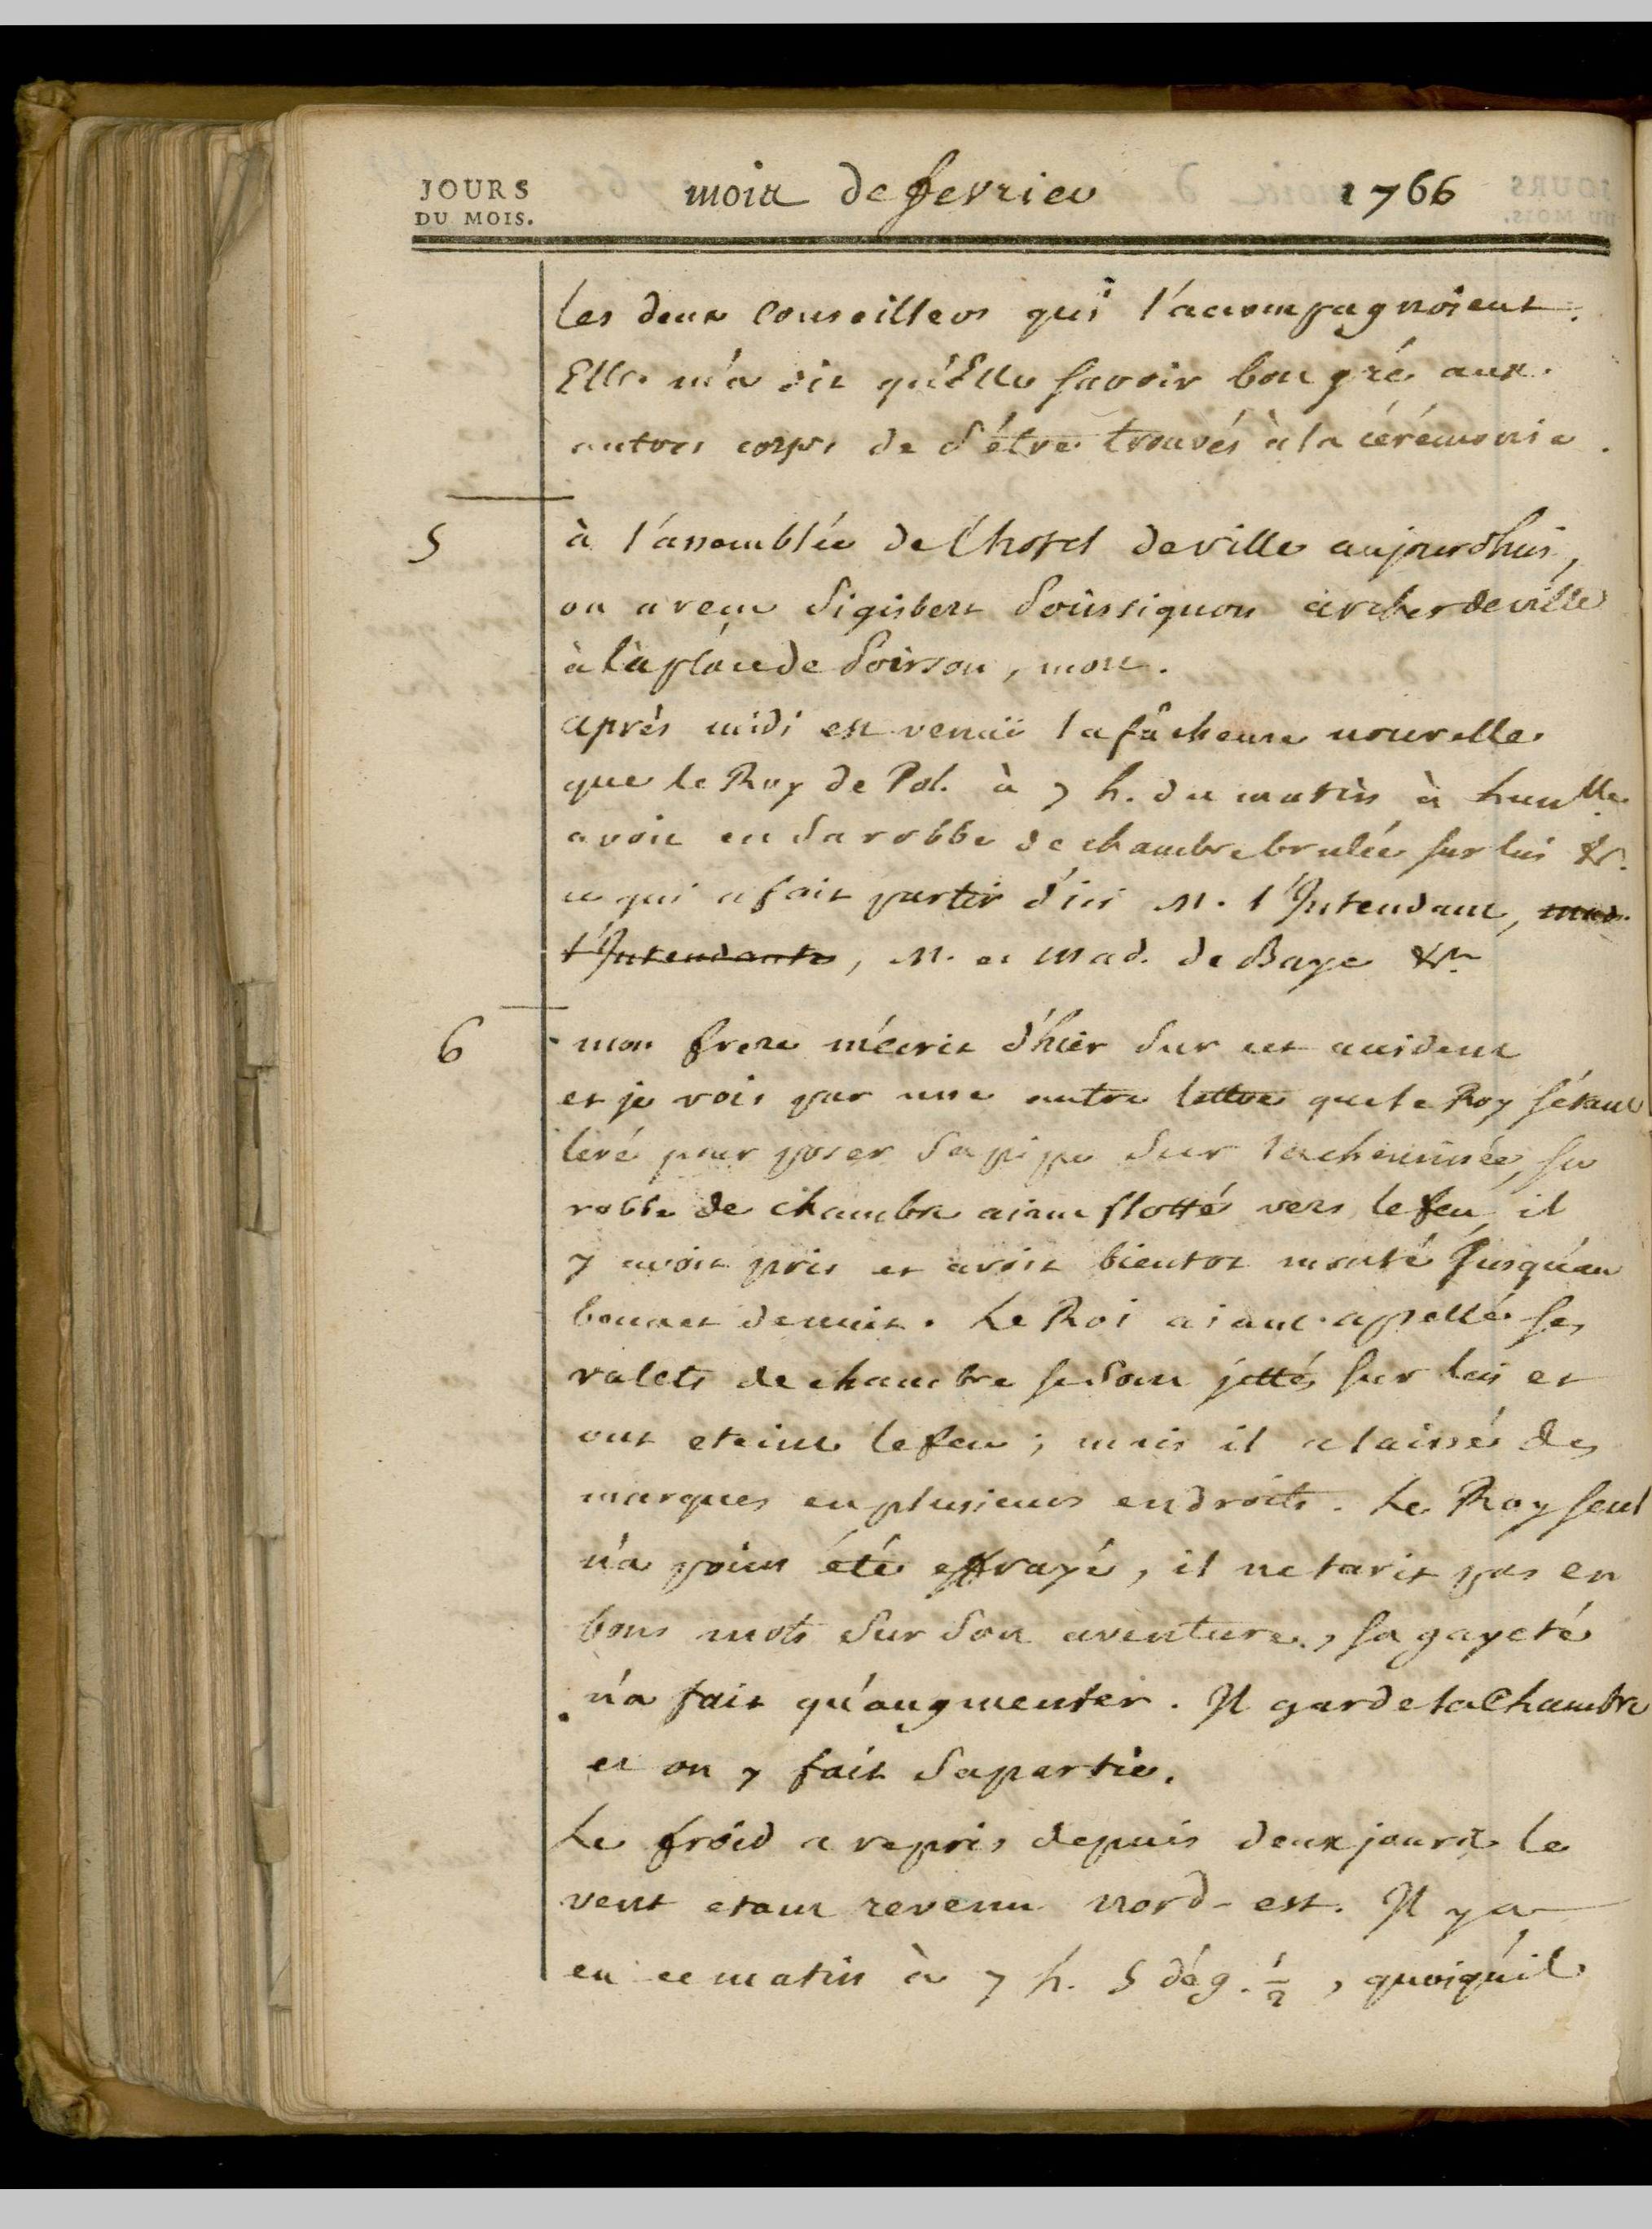 JOURS
DU MOIS.
mois de fevrier 1766
les deux Conseillers qui l'acompagnoient.
Elle m'a dit qu'Elle savoit bon gré aux
autres corps de s'étre trouvés à la cérémonie.
5
à l'assemblée de l'hotel de ville aujourdhui,
on a reçu Sigisbert Soussignon archer de ville
à la place de Poirson, mort.
après midi est venüe la fâcheuse nouvelle
que le Roy de Pol. à 7 h. du matin à Lunlle.
avoit eu sa robbe de chambre brulée sur lui &c.
ce qui a fait partir d'ici M. l'Intendant, mad.
l'Intendante, M. et Mad. de Baye &c.
6
mon frere m'écrit d'hier sur cet accident
et je vois par une autre lettre que le Roy s'étant
levé pour poser sa pipe sur la cheminée, sa
robbe de chambre aiant flotté vers le feu, il
y avoit pris et avoit bientot monté jusqu'au
bonnet de nuit. Le Roi aiant appellé ses
valets de chambre se sont jettés sur lui et
ont eteint le feu; mais il a laissé des
marques en plusieurs endroits. Le Roy seul
n'a point été effrayé, il ne tarit pas en
bons mots sur son aventure, sa gayeté
n'a fait qu'augmenter. Il garde la Chambre
et on y fait sa partie.
Le froid a repris depuis deux jours le
vent etant revenu nord-est. Il y a
eu ce matin à 7 h. 5 dég. 1/2, quoiqu'il